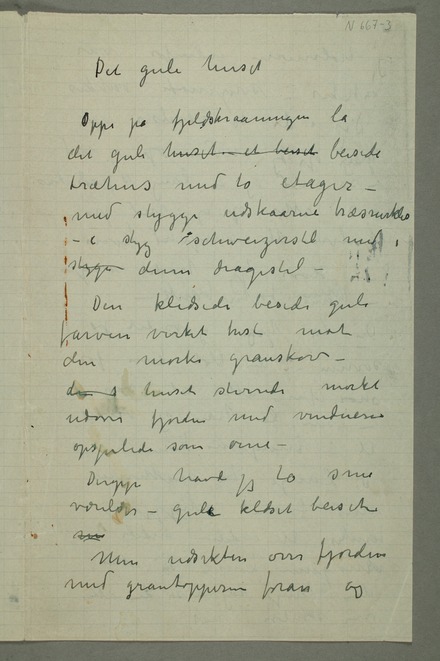 N 667-3
Det gule huset
Oppe på fjeldskraaningen la
det gule huset – et beiset beisede
træhus med to etager –
med stygge udskaarne træsnirkler
– i styg schweizerstil med
stygge denne dragestil –
Den klidsede beisede gule
farven virket trist mot
den mørke granskov –
huset stirrede mørkt
udover fjorden med vinduerne
opspilede som øine –
Deroppe havde jeg to små
værelser – gule beisete
Men udsikten over fjorden
med grantoppene foran og